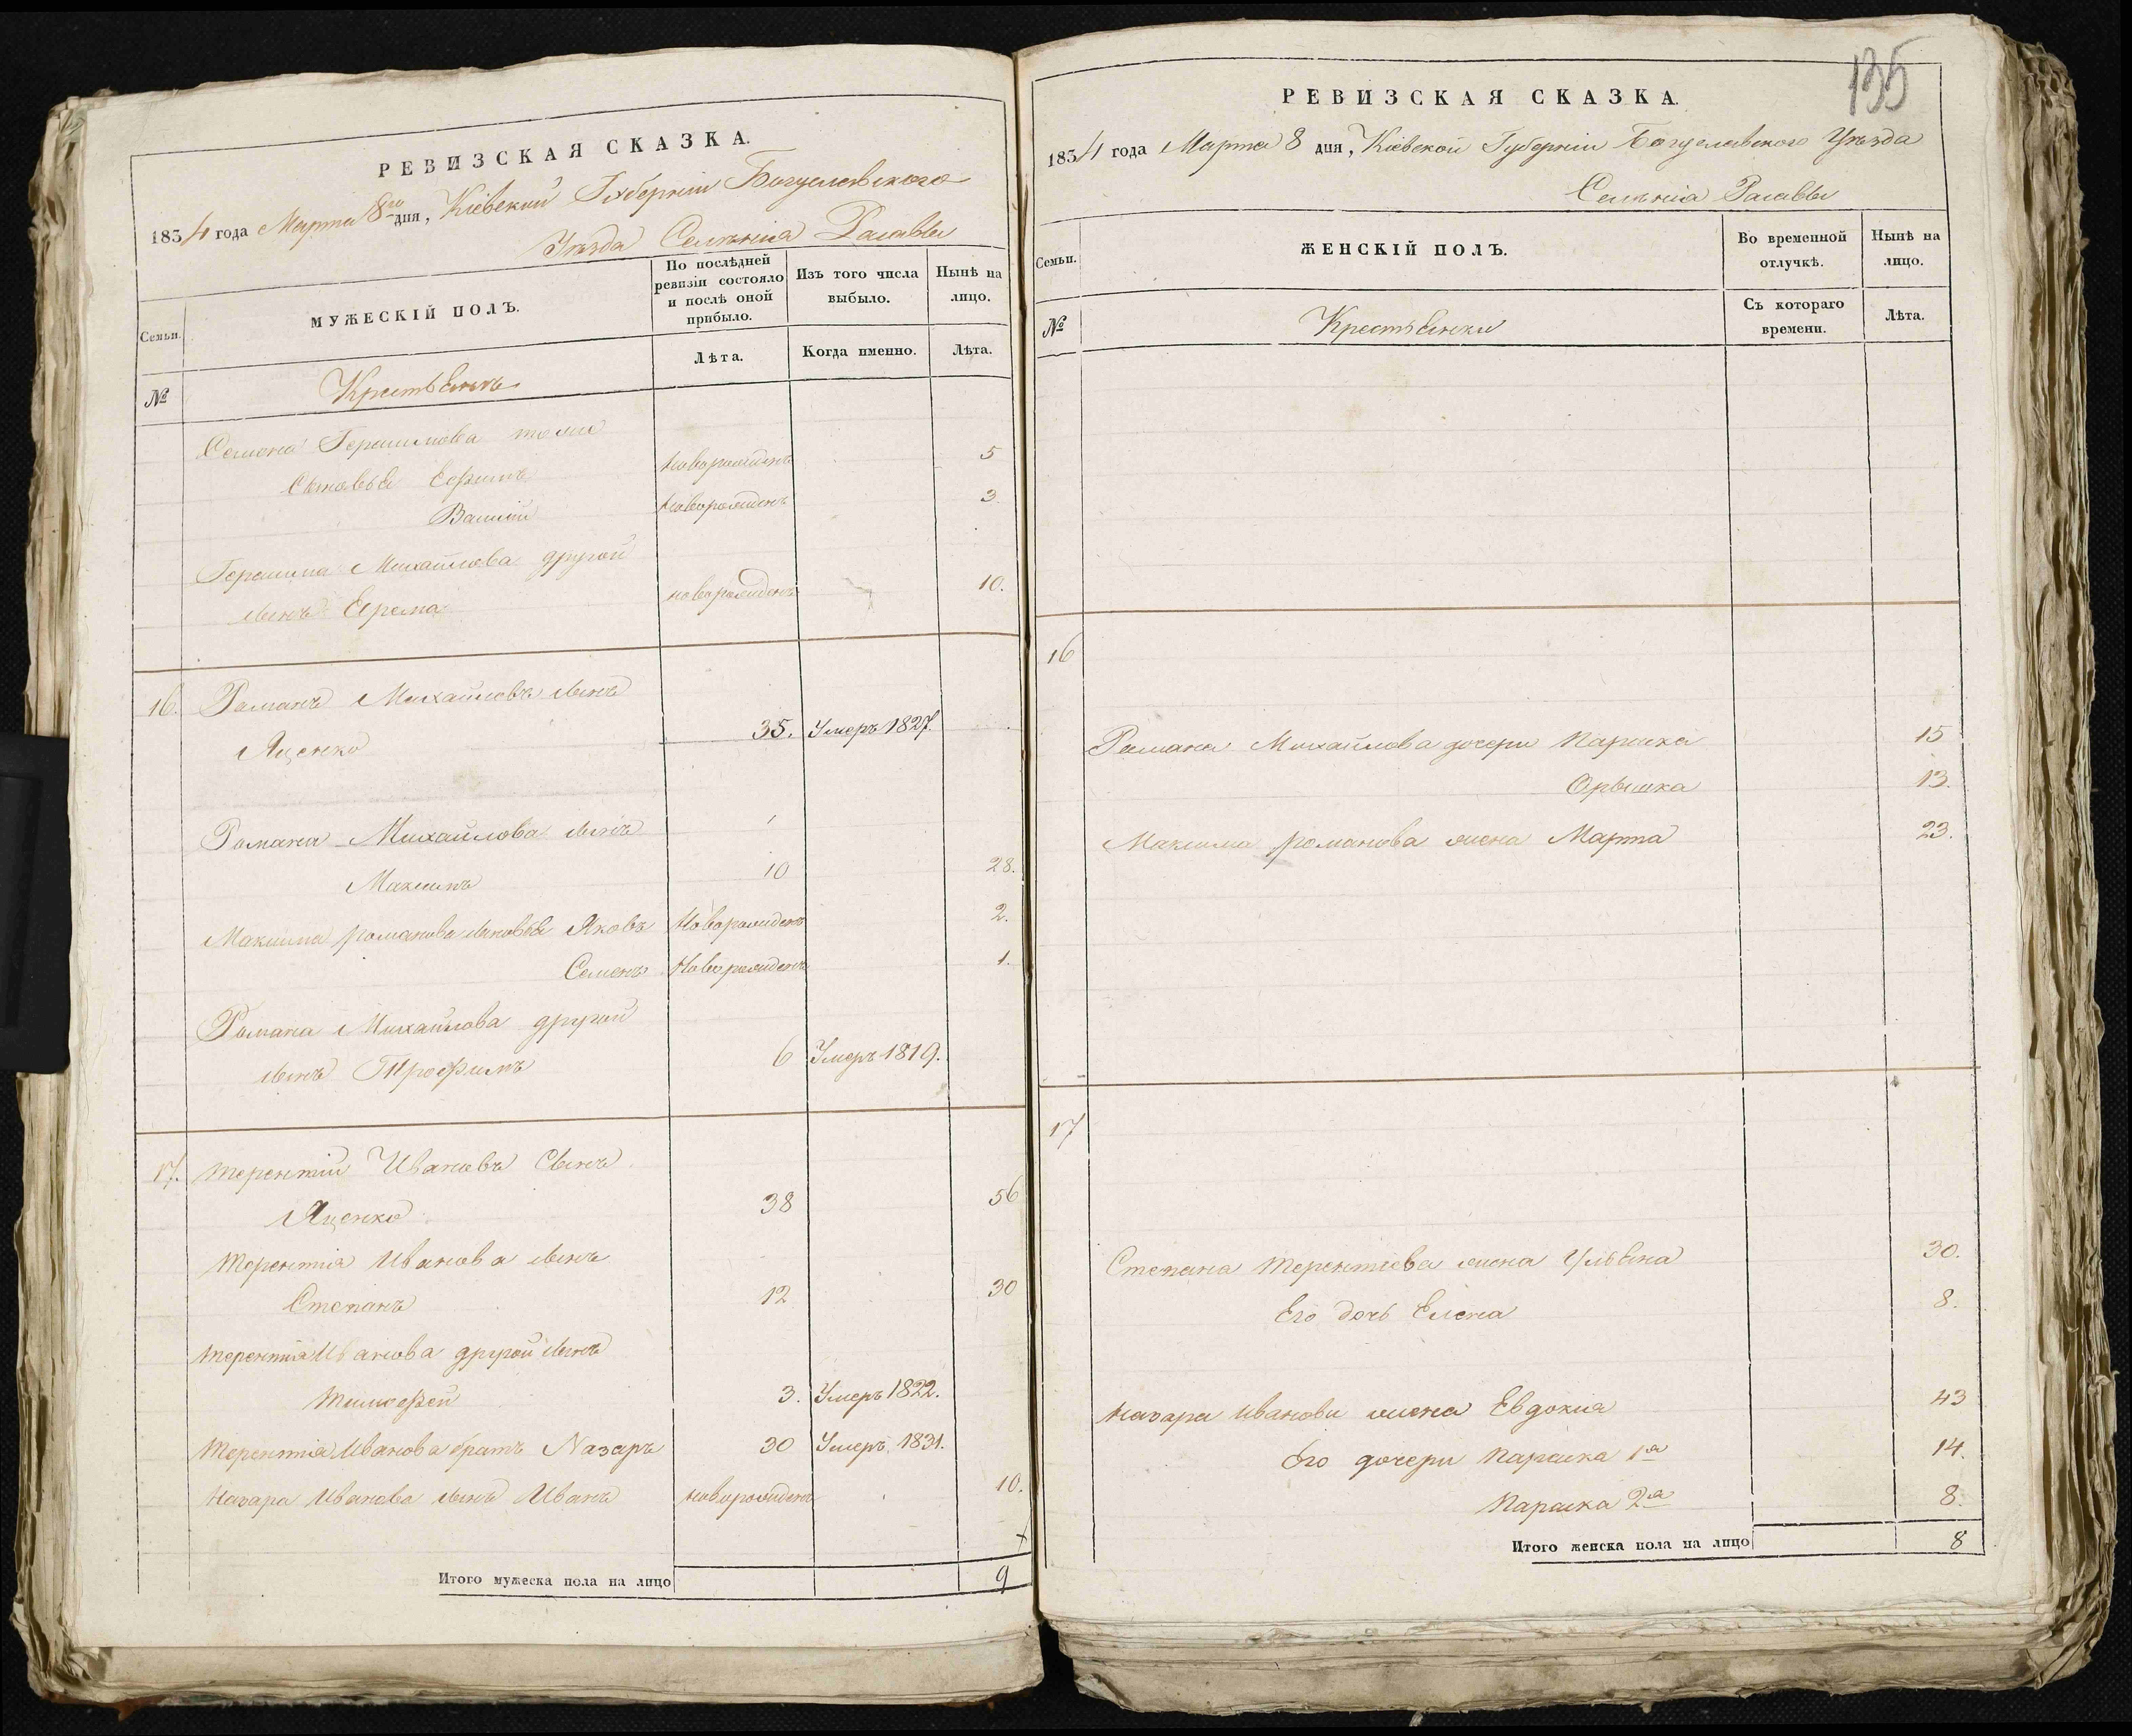 РЕВИЗСКАЯ СКАЗКА.
1834 года Марта 8го дня, Кіевской Губерніи Богуславскаго
Уѣзда Селѣнія Расавы
Семьи.
МУЖЕСКІЙ ПОЛЪ.
По послѣдней ревизіи состояло и послѣ оной прибыло.
Изъ того числа выбыло.
Нынѣ на лицо.
Лѣта.
Когда именно.
Лѣта.
№
Крестьянъ
Семена Герасимова
Сыновья Ефимъ новорожденъ 5
Василій новорожденъ 3
Герасима Михайлова другой
сынъ Ерема новорожденъ 10.
16. Романъ Михайловъ сынъ
Яценко 35. Умеръ 1827.
Романа Михайлова сынъ
Максимъ 10 28.
Максима Романова сыновья Яковъ Новорожденъ 2.
Семенъ Новорожденъ 1.
Романа Михайлова другой
сынъ Трофимъ 6 Умеръ 1819.
17. Терентій Ивановъ Сынъ
Яценко 38 56
Терентія Иванова сынъ
Степанъ 12 30
Терентія Иванова другой сынъ
Тимофей 3. Умеръ 1822.
Терентія Иванова братъ Назаръ 30 Умеръ 1831.
Назара Иванова сынъ Иванъ новорожденъ 10.
Итого мужеска пола на лицо 9
135
РЕВИЗСКАЯ СКАЗКА.
1834 года Марта 8 дня, Кіевской Губерніи Богуславского Уѣзда
Селѣнія Расавы
Семьи.
ЖЕНСКІЙ ПОЛЪ.
Во временной отлучкѣ.
Нынѣ на лицо.
№
Крестьянки
Съ котораго времени.
Лѣта.
16
Романа Михайлова дочери Параска 15
Орышка 13.
Максима Романова жена Марта 23.
17
Степана Терентіева жена Ульяна 30.
Его дочь Елена 8.
Назара Иванова жена Евдокия 43
Его дочери Параска 1я 14.
Параска 2я 8.
Итого женска пола на лицо 8